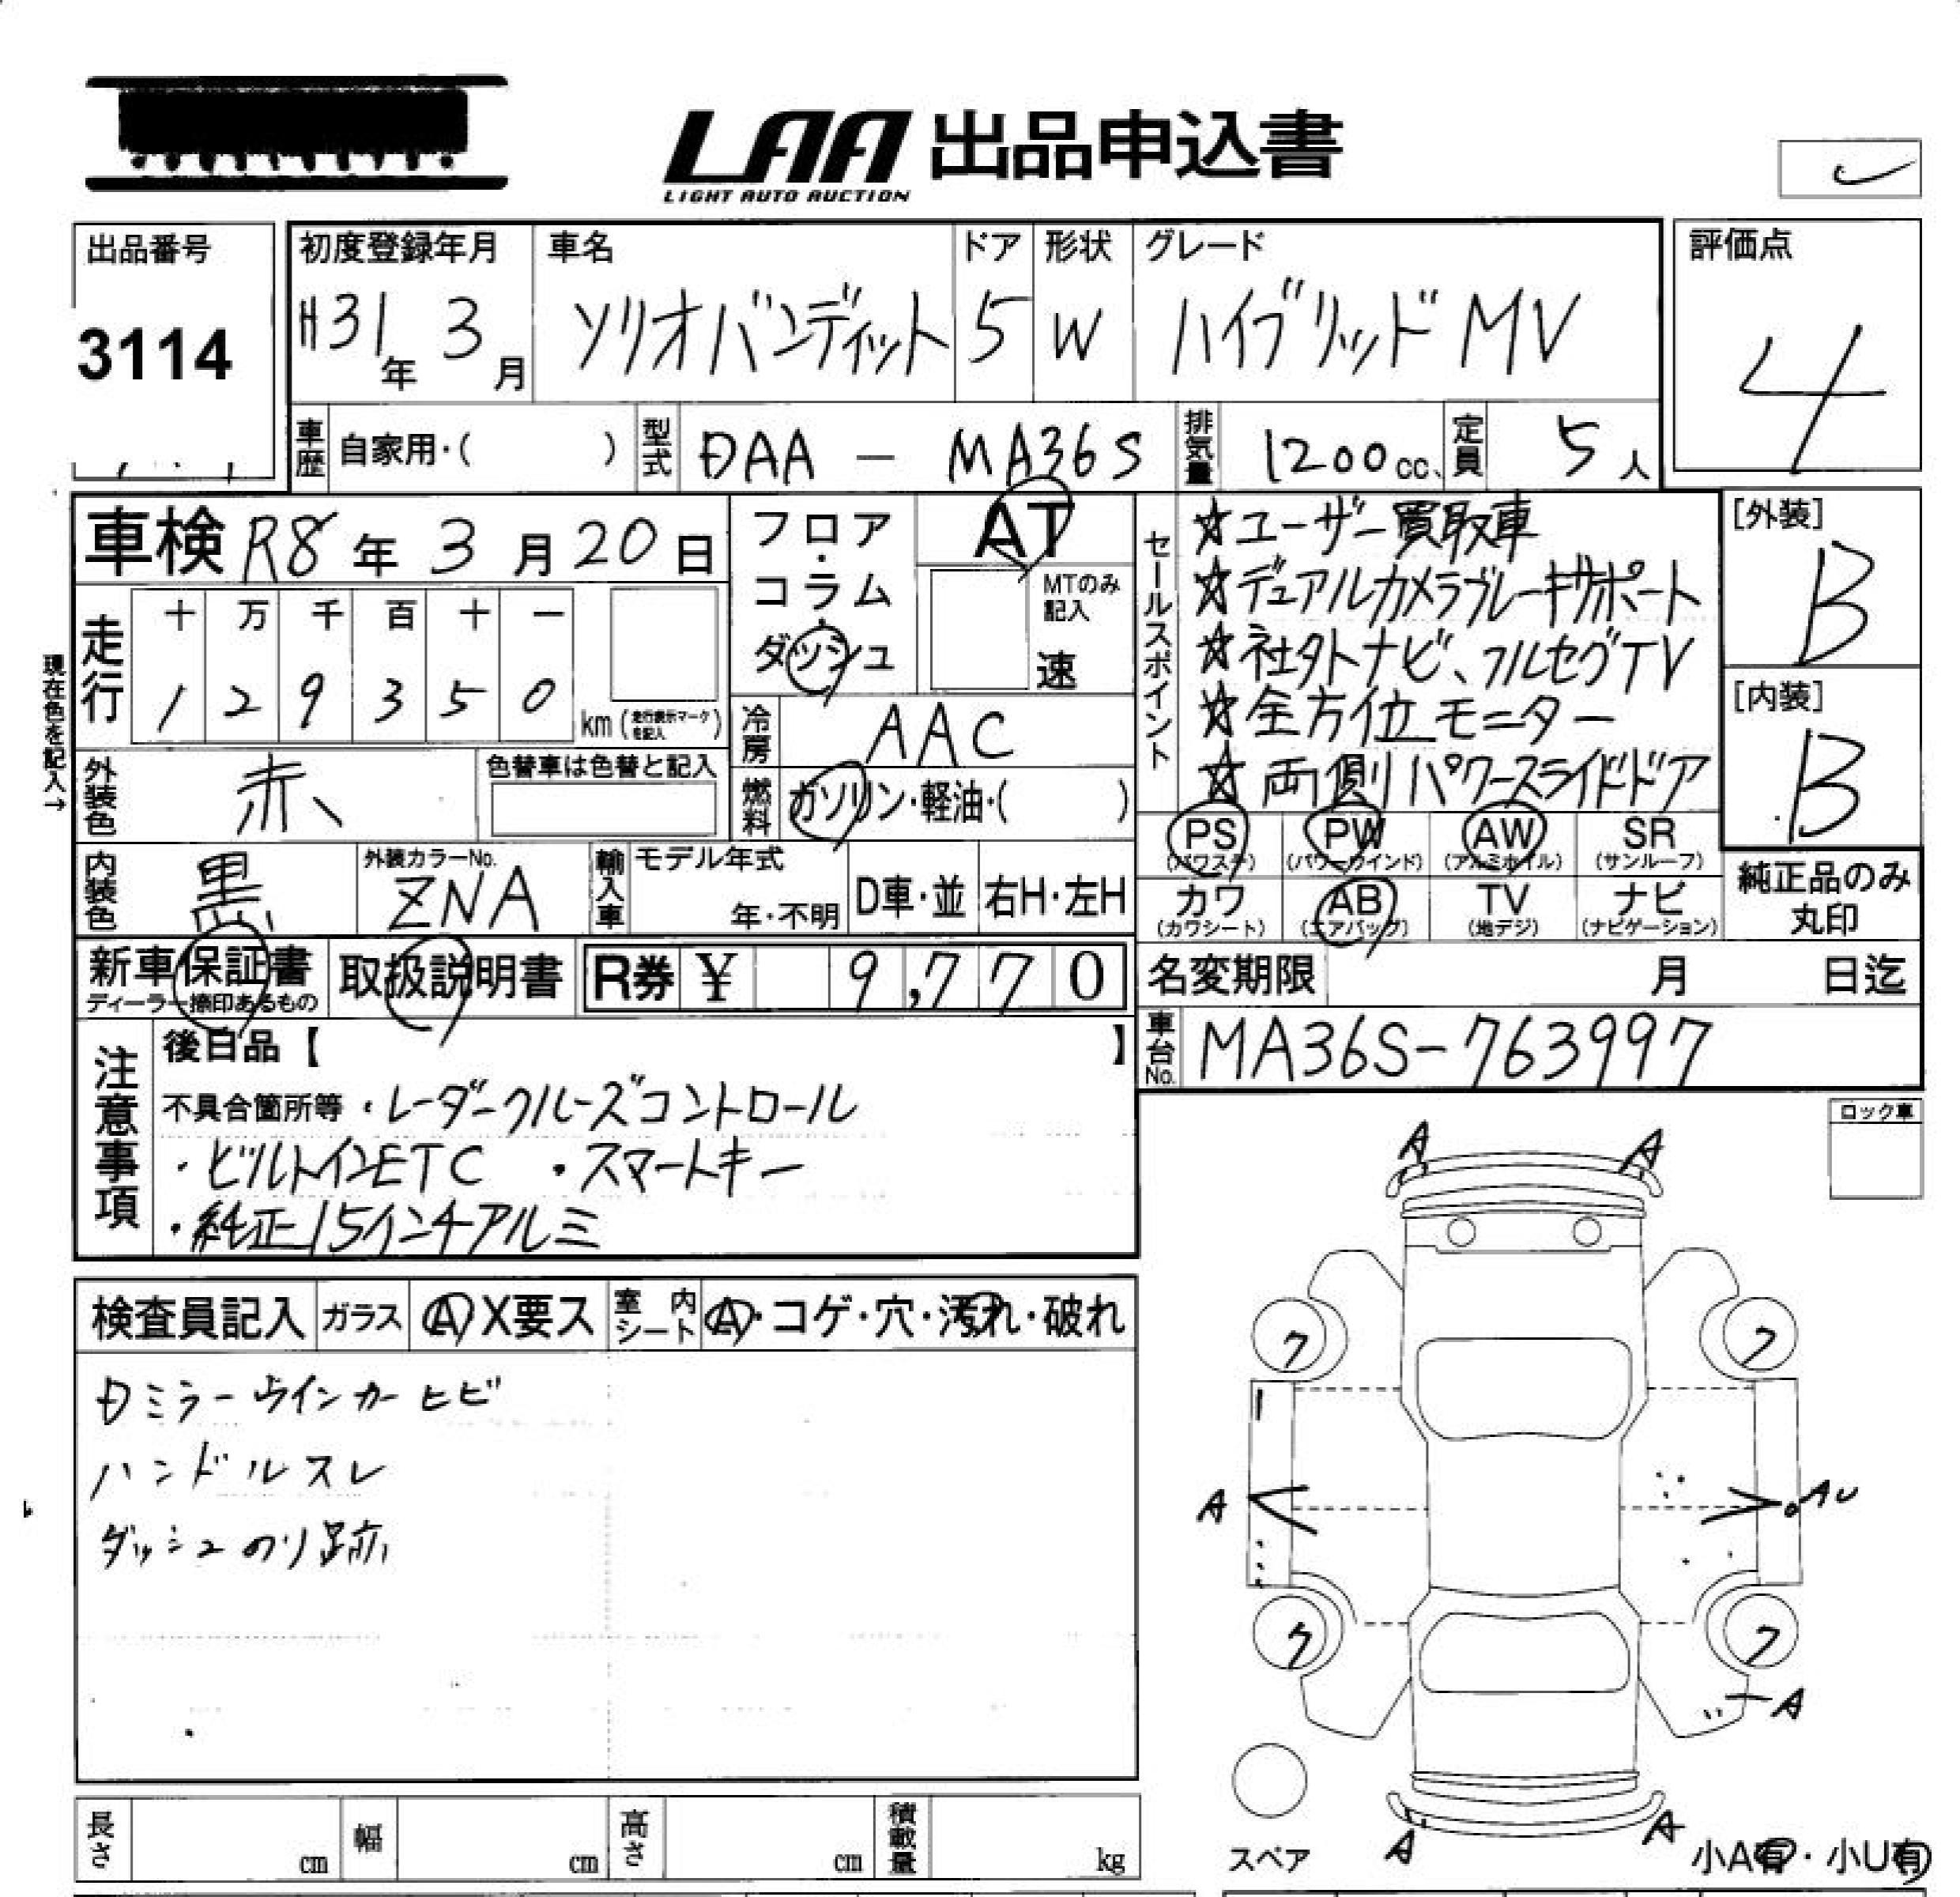 LAA 出品申込書
LIGHT AUTO AUCTION
出品番号
3114
初度登録年月
H31年 3月
車名
ソリオバンディット
ドア
5
形状
W
グレード
ハイブリッド MV
評価点
4
車歴 自家用・( )
型式 DAA - MA36S
排気量 1200cc
定員 5人
車検 R8年 3月 20日
フロア・コラム
ダッシュ
AT
MTのみ記入
速
現在色を記入→
走行
十 万 千 百 十 一
1 2 9 3 5 0 km (走行表示マークを記入)
冷房 AAC
燃料 ガソリン・軽油・( )
外装色 赤
色替車は色替と記入
内装色 黒
外装カラーNo.
ZNA
輸入車
モデル年式
年・不明
D車・並
右H・左H
セールスポイント
☆ユーザー買取車
☆デュアルカメラブレーキサポート
☆社外ナビ、フルセグTV
☆全方位モニター
☆両側パワースライドドア
[外装]
B
[内装]
B
PS (パワステ)
PW (パワーウインド)
AW (アルミホイル)
SR (サンルーフ)
カワ (カワシート)
AB (エアバッグ)
TV (地デジ)
ナビ (ナビゲーション)
純正品のみ丸印
新車保証書
ディーラー捺印あるもの
取扱説明書
R券 ¥ 9,770
名変期限 月 日迄
車台No. MA36S-763997
注意事項
後日品【 】
不具合箇所等 ・レーダークルーズコントロール
・ビルトインETC ・スマートキー
・純正15インチアルミ
ロック車
検査員記入
ガラス A X要ス
室内シート A・コゲ・穴・汚れ・破れ
ミラーウインカーヒビ
ハンドルスレ
ダッシュのり跡
A A
ク ク
A AU
ク ク
A
A A
スペア
小A有・小U有
長さ cm
幅 cm
高さ cm
積載量 kg